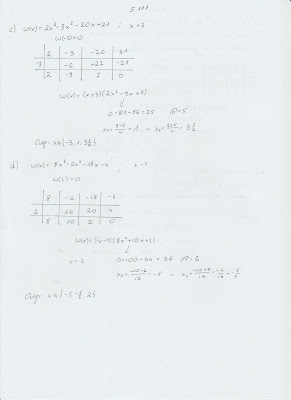 5.111
c) W(x) = 2x³ - 3x² - 20x + 21 ; x+3
W(-3)=0
2 -3 -20 21
-3 -6 +27 -21
2 -9 7 0
W(x) = (x+3)(2x² - 9x + 7)
Δ=81-56=25 √Δ=5
x₁= 9-5/4 = 1 ∨ x₂= 9+5/4 = 3½
Odp: x∈{-3, 1, 3½}
d) W(x) = 8x³ - 6x² - 18x - 4 ; x-2
W(2)=0
8 -6 -18 -4
2 16 20 4
8 10 2 0
W(x) = (x-2)(8x²+10x+2)
x=2 Δ=100-64=36 √Δ=6
x₁= -10-6/16 = -1 ∨ x₂= -10+6/16 = -4/16 = -1/4
Odp: x∈{-1, -¼, 2}